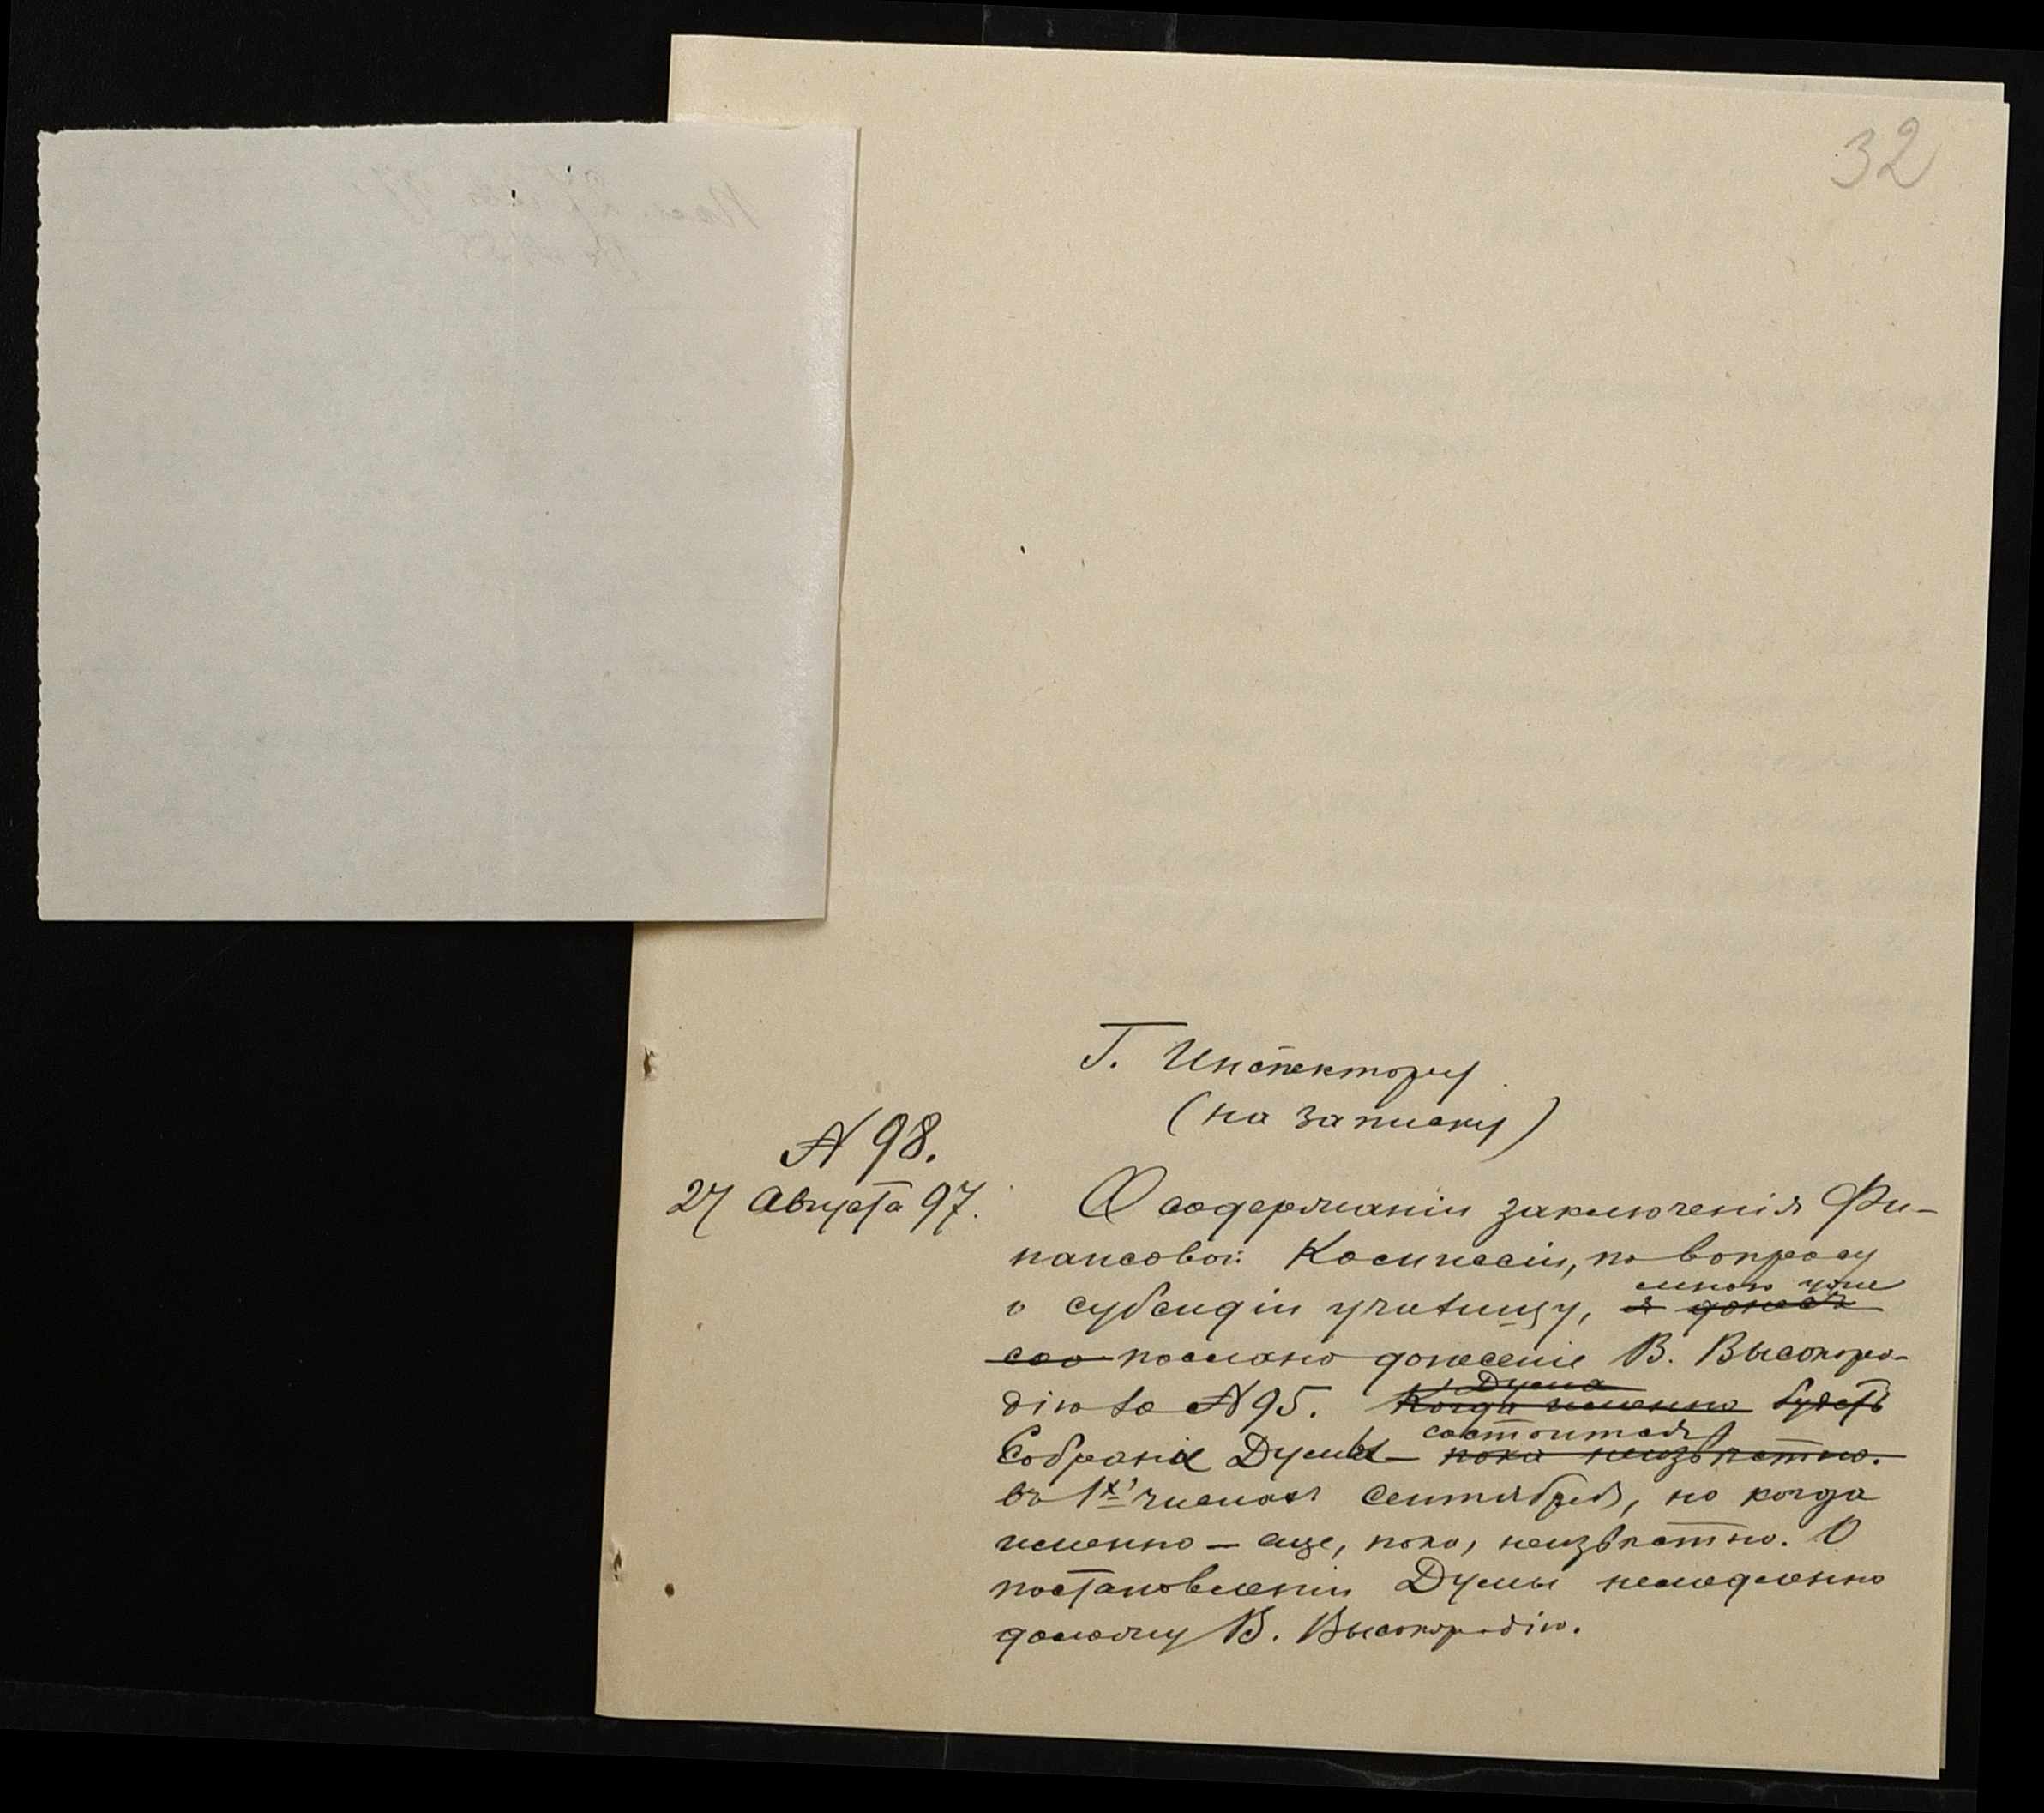 32
Г. Инспектору
(на записку)
№ 98.
27 Августа 97.
О содержаніи заключенія Фи-
нансовой Коммиссіи, по вопросу
мною уже
о субсидіи училищу, я донесъ
послано донесеніе В. Высокоро-
Дума
дію за № 95. Когда именно будетъ
состоится
Собраніе Думы – пока неизвѣстно.
въ 1хъ числахъ Сентября, но когда
именно – еще, пока, неизвѣстно. О
постановленіи Думы немедленно
доложу В. Высокородію.